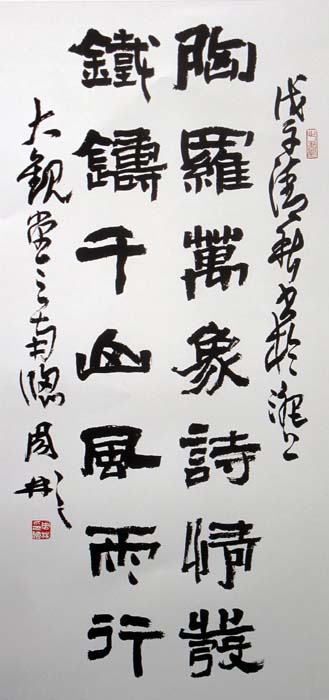 戊子清秋书於
胸羅萬象詩情發
鐵鑄千山風雨行
大觀堂之南牕周